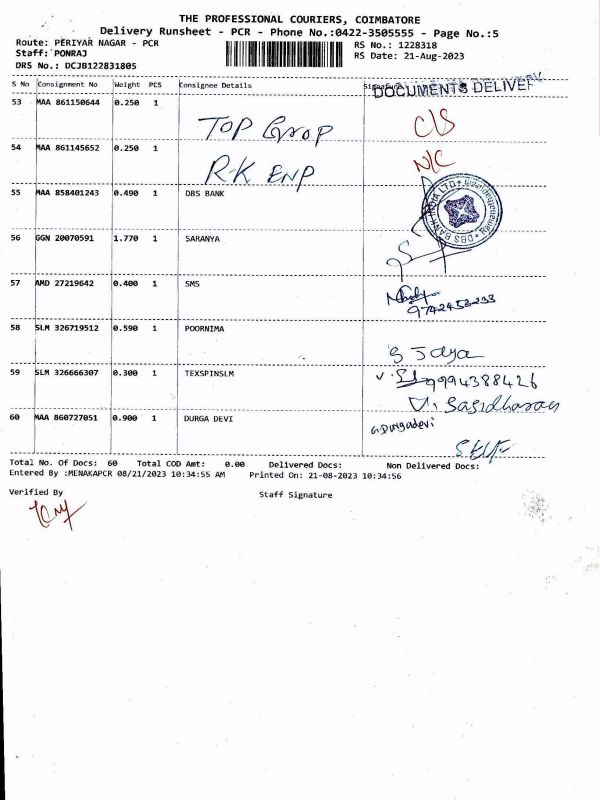 THE PROFESSIONAL COURIERS, COIMBATORE
Delivery Runsheet - PCR - Phone No.:0422-3505555 - Page No.:5
Route: PERIYAR NAGAR - PCR
RS No.: 1228318
Staff: PONRAJ
RS Date: 21-Aug-2023
DRS No.: DCJB122831805
S No Consignment No Weight PCS Consignee Details
DOCUMENTS DELIVERY
53 MAA 861150644 0.250 1 TOP Group C/S
54 MAA 861145652 0.250 1 R-K ENP N/C
55 MAA 858401243 0.490 1 DBS BANK
DBS BANK INDIA LTD
56 GGN 20070591 1.770 1 SARANYA
57 AMD 27219642 0.400 1 SMS
9742453233
58 SLM 326719512 0.590 1 POORNIMA
S Jaya
59 SLM 326666307 0.300 1 TEXSPINSLM 9994388426
V. Sasidharan
60 MAA 860727051 0.900 1 DURGA DEVI G.Durgadevi
Self
Total No. Of Docs: 60 Total COD Amt: 0.00 Delivered Docs: Non Delivered Docs:
Entered By :MENAKAPCR 08/21/2023 10:34:55 AM Printed On: 21-08-2023 10:34:56
Verified By Staff Signature